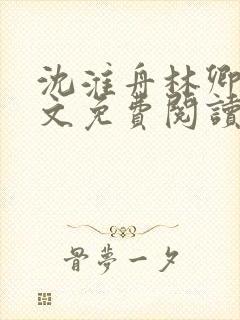 沈淮舟林卿
文免費閱讀
骨夢一夕